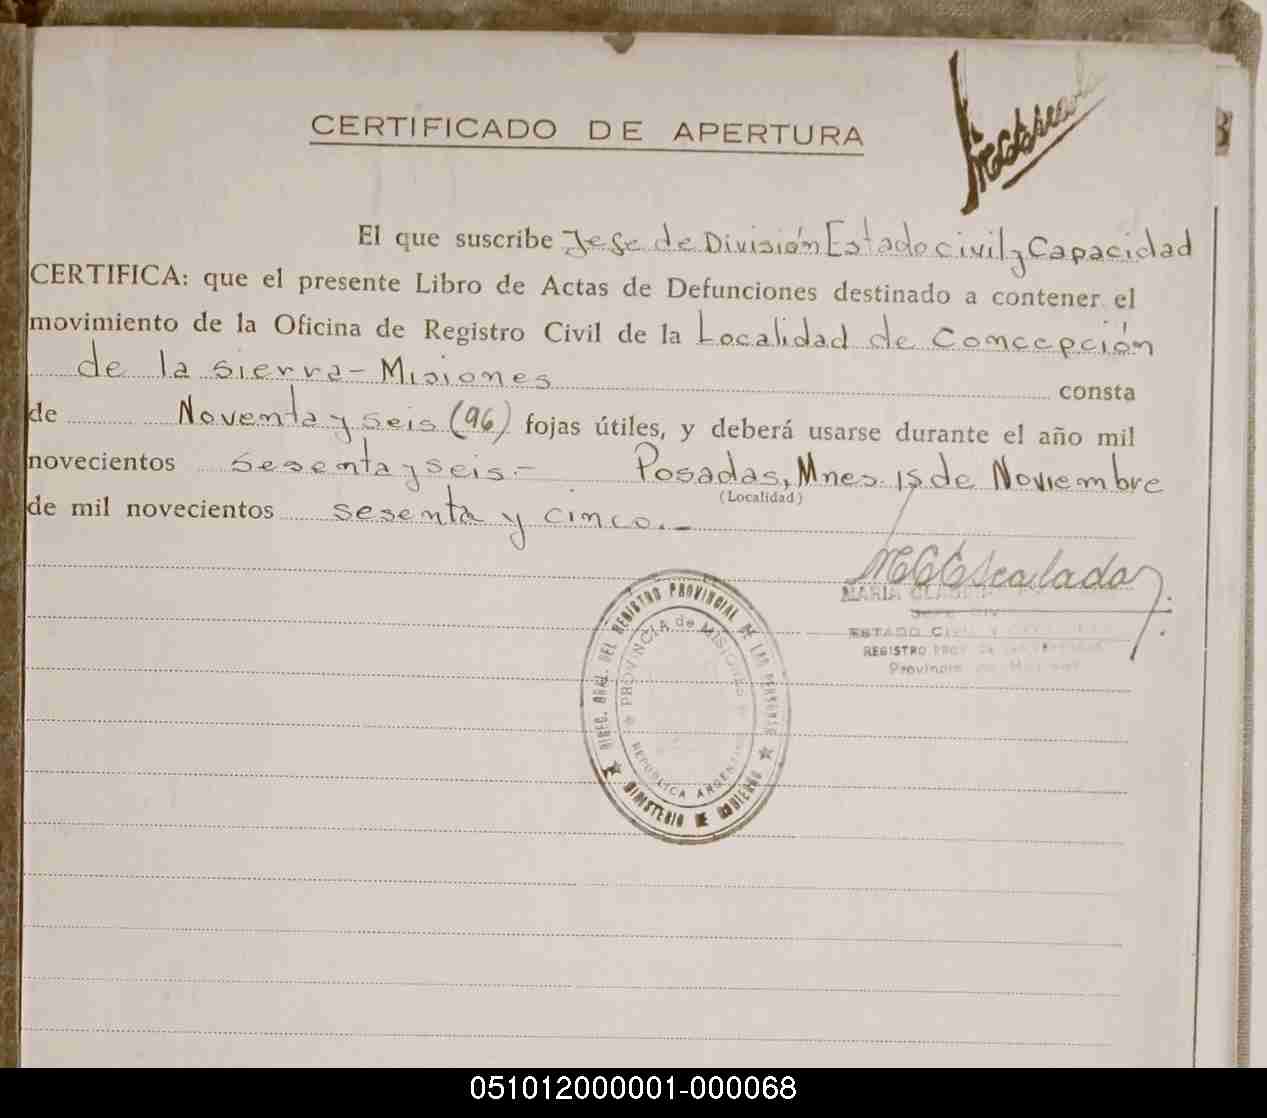 CERTIFICADO DE APERTURA
El que suscribe Jefe de División Estado civil y Capacidad
CERTIFICA: que el presente Libro de Actas de Defunciones destinado a contener el
movimiento de la Oficina de Registro Civil de la Localidad de Concepción
de la sierra - Misiones consta
de Noventa y seis (96) fojas útiles, y deberá usarse durante el año mil
novecientos sesenta y seis.- Posadas, Mnes. 15 de Noviembre
(Localidad)
de mil novecientos sesenta y cinco.-
MCCEscalada
MARIA
ESTADO CIVIL Y
REGISTRO PROV. DE LAS PERSONAS
Provincia de Misiones
DIREC. GRAL. DEL REGISTRO PROVINCIAL DE LAS PERSONAS
PROVINCIA de MISIONES
REPUBLICA ARGENTINA
★ MINISTERIO DE GOBIERNO ★
051012000001-000068